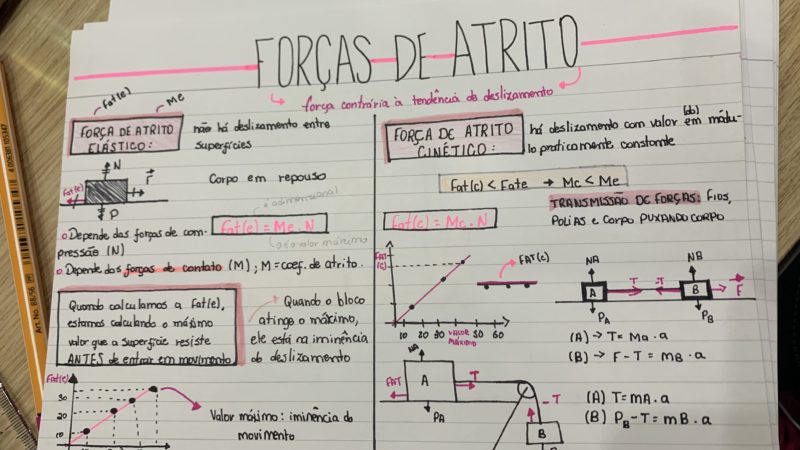 FORÇAS DE ATRITO
força contrária à tendência de deslizamento
Fat(e)
Me
FORÇA DE ATRITO
ELÁSTICO:
não há deslizamento entre
superfícies
N
Fat(e)
F
P
Corpo em repouso
é adimensional
Fat(e) = Me . N
Depende das forças de com-
pressão (N)
Depende das forças de contato (M); M = coef. de atrito.
Quando calculamos a Fat(e),
estamos calculando o máximo
valor que a superfície resiste
ANTES de entrar em movimento
Quando o bloco
atinge o máximo,
ele está na iminência
do deslizamento
Fat(e)
30
20
10
Valor máximo: iminência do
movimento
FORÇA DE ATRITO
CINÉTICO:
há deslizamento com valor em módu-
lo praticamente constante
Fat(c) < Fate → Mc < Me
Fat(c) = Mc . N
TRANSMISSÃO DE FORÇAS: FIOS,
POLIAS E CORPO PUXANDO CORPO
FAT
(c)
10 20 30 VALOR MÁXIMO 50 60
FAT(c)
NA
NB
A
T
-T
B
F
PA
PB
(A) → T = Ma . a
(B) → F - T = mB . a
NA
FAT
A
T
PA
-T
B
(A) T = mA . a
(B) PB - T = mB . a
Art. No. 88/56
4006381105347